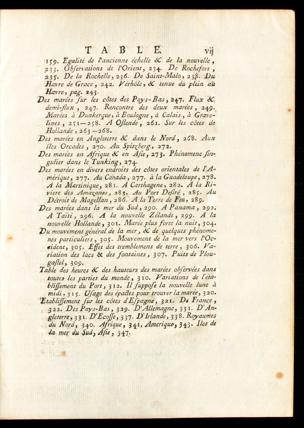 TABLE. vij
159. Egalité de l'ancienne échelle & de la nouvelle,
233. Observations de l'Orient, 234. De Rochefort,
235. De la Rochelle, 236. De Saint-Malo, 238. Du
Havre de Grace, 242. & tenue du plein au
Havre, pag. 243.
Des marées sur les côtes des Pays-Bas, 247. Flux &
demi-flux, 247. Rencontre des deux marées, 249.
Marées à Dunkerque, à Boulogne, à Calais, à Grave-
lines, 251—258. A Ostende, 262. Sur les côtes de
Hollande, 263—268.
Des marées en Angleterre & dans le Nord, 268. Aux
isles Orcades, 270. Au Spizberg, 272.
Des marées en Afrique & en Asie, 273. Phénomene sin-
gulier dans le Tunking, 274.
Des marées en divers endroits des côtes orientales de l'A-
mérique, 277. Au Canada, 277. à la Guadeloupe, 278.
A la Martinique, 281. A Carthagene, 282. A la Ri-
viere des Amazones, 285. Au Port Desiré, 285. Au
Détroit de Magellan, 286. A la Terre de Feu, 289.
Des marées dans la mer du Sud, 290. A Panama, 292.
A Taïti, 296. A la nouvelle Zélande, 299. A la
nouvelle Hollande, 301. Marée plus forte la nuit, 304.
Du mouvement général de la mer, & de quelques phénome-
nes particuliers, 305. Mouvement de la mer vers l'Oc-
cident, 305. Effets des tremblemens de terre, 306. Va-
riation des lacs & des fontaines, 307. Puits de Plou-
gastel, 309.
Table des heures & des hauteurs des marées observées dans
toutes les parties du monde, 310. Variations de l'éta-
blissement du Port, 312. Il suppose la nouvelle lune à
midi, 315. Usage des épactes pour trouver la marée, 320.
Etablissement sur les côtes d'Espagne, 321. De France,
322. Des Pays-Bas, 329. D'Allemagne, 331. D'An-
gleterre, 331. D'Ecosse, 337. D'Irlande, 338. Royaumes
du Nord, 340. Afrique, 341, Amerique, 343. Isles de
la mer du Sud, Asie, 347.